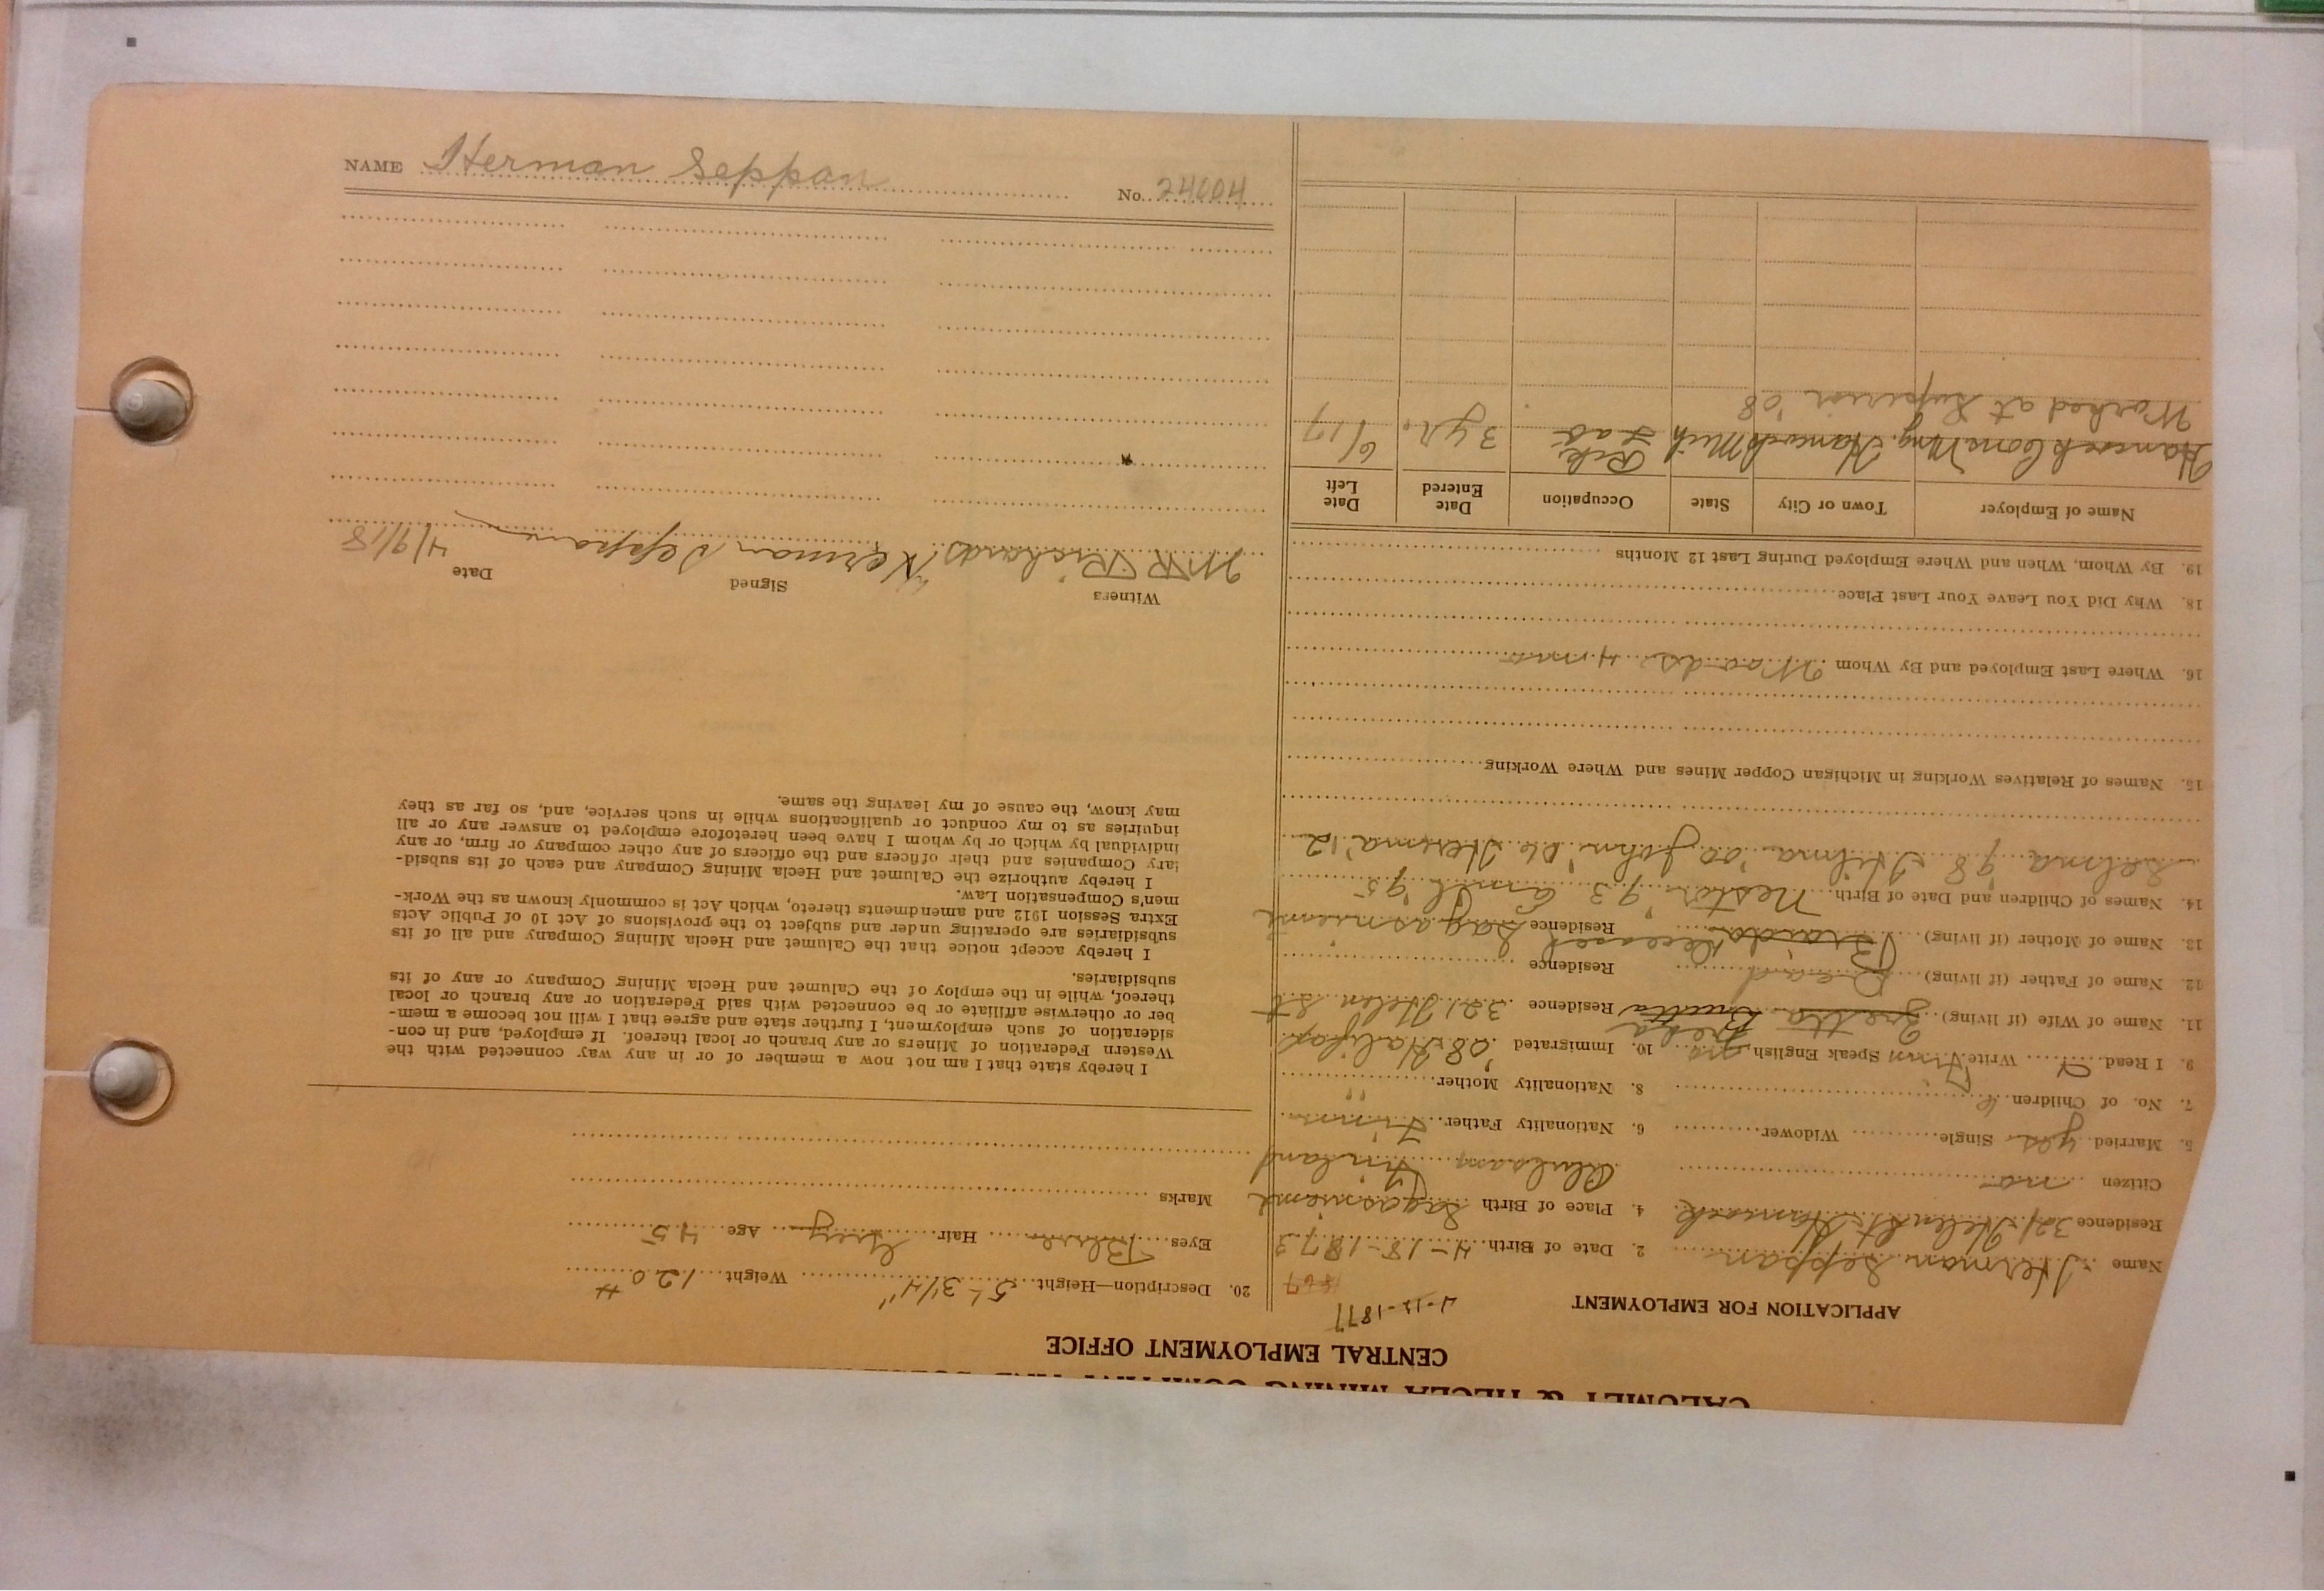 CALUMET & HECLA MINING COMPANY AND
CENTRAL EMPLOYMENT OFFICE
APPLICATION FOR EMPLOYMENT
4-18-1877
1867
Name Herman Seppan 2. Date of Birth 4-18-1873
Residence 321 Helen St Hancock 4. Place of Birth
Citizen no Finland
5. Married yes Single Widower 6. Nationality Father Finn
7. No. of Children 6 8. Nationality Mother "
9. I Read F Write Finn Speak English no 10. Immigrated '08 Halifax
11. Name of Wife (if living) Greta Residence 321 Helen St
12. Name of Father (if living) Dead Residence
13. Name of Mother (if living) Residence
14. Names of Children and Date of Birth Nestor '93 '95
Selma '98 Hilma '00 John '06 '12
15. Names of Relatives Working in Michigan Copper Mines and Where Working
16. Where Last Employed and By Whom Woods 4 mo
18. Why Did You Leave Your Last Place
19. By Whom, When and Where Employed During Last 12 Months
Name of Employer Town or City State Occupation Date Entered Date Left
Hancock Cons Mng. Hancock Mich 3 yr. 6/17
Worked at Superior '08
20. Description—Height 5' 3 1/4" Weight 120 #
Eyes Blue Hair Grey Age 45
Marks
I hereby state that I am not now a member of or in any way connected with the
Western Federation of Miners or any branch or local thereof. If employed, and in con-
sideration of such employment, I further state and agree that I will not become a mem-
ber or otherwise affiliate or be connected with said Federation or any branch or local
thereof, while in the employ of the Calumet and Hecla Mining Company or any of its
subsidiaries.
I hereby accept notice that the Calumet and Hecla Mining Company and all of its
subsidiaries are operating under and subject to the provisions of Act 10 of Public Acts
Extra Session 1912 and amendments thereto, which Act is commonly known as the Work-
men's Compensation Law.
I hereby authorize the Calumet and Hecla Mining Company and each of its subsid-
iary Companies and their officers and the officers of any other company or firm, or any
individual by which or by whom I have been heretofore employed to answer any or all
inquiries as to my conduct or qualifications while in such service, and, so far as they
may know, the cause of my leaving the same.
Witness Signed Date
Richards Herman Seppan 4/9/18
NAME Herman Seppan No. 24604